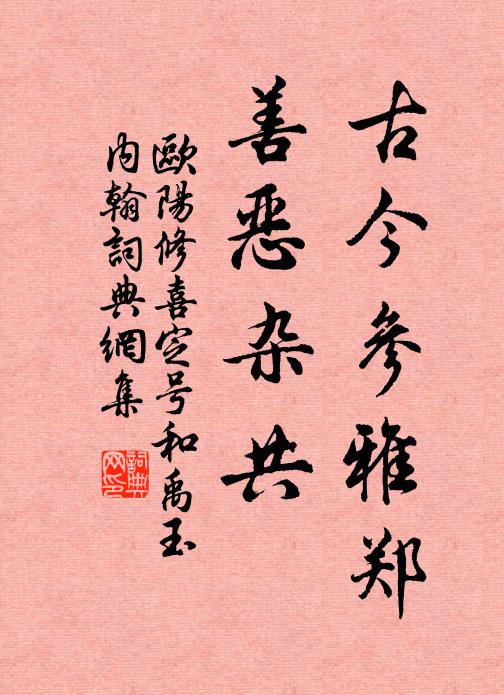 古今參雅郑
善恶杂共
歐陽修喜定号和禹玉
内翰詞典網集
詞典网印